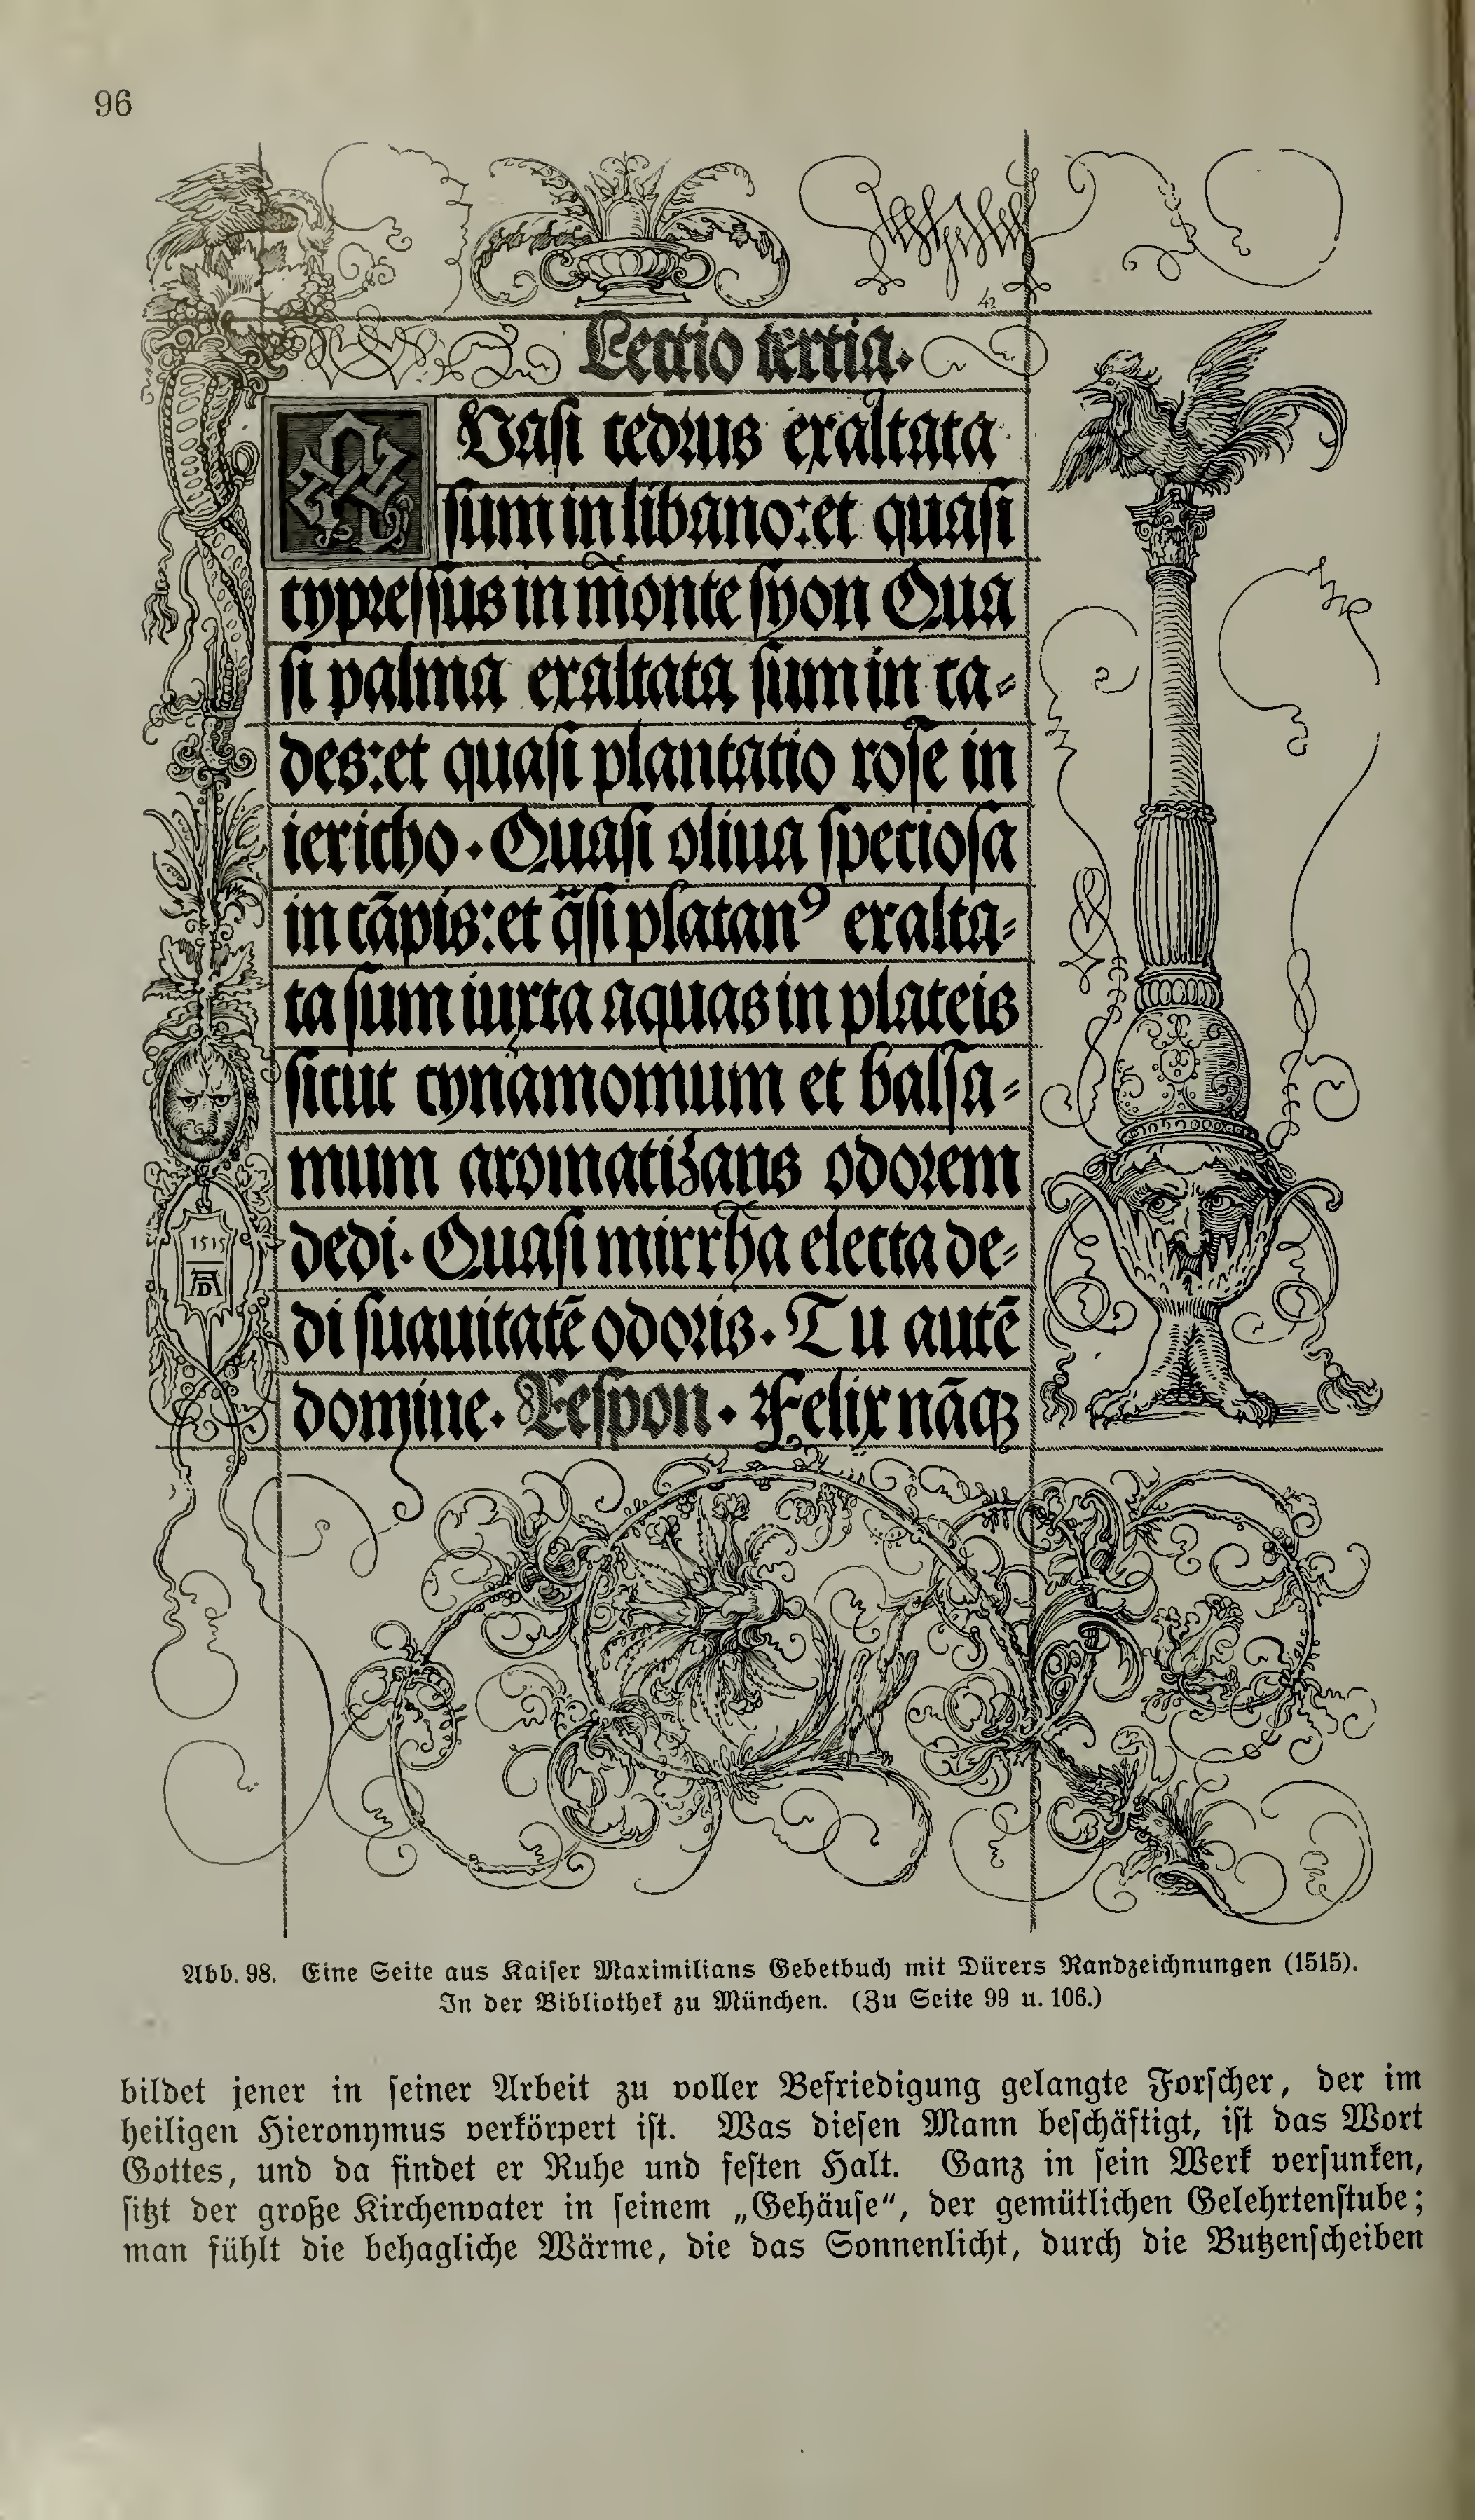 96
42
Lectio tertia.
QUasi cedrus exaltata
sum in libano: et quasi
cypressus in mōnte syon Qua
si palma exaltata sum in ca⸗
des: et quasi plantatio rose in
iericho. Quasi oliua speciosa
in cāpis: et q̄si platanꝰ exalta⸗
ta sum iuxta aquas in plateis
sicut cynamomum et balsa⸗
mum aromatizans odorem
dedi. Quasi mirrha electa de⸗
di suauitatē odoris. Tu autē
domine. Respon. Felix nāqꝫ
1515
AD
Abb. 98. Eine Seite aus Kaiser Maximilians Gebetbuch mit Dürers Randzeichnungen (1515).
In der Bibliothek zu München. (Zu Seite 99 u. 106.)
bildet jener in seiner Arbeit zu voller Befriedigung gelangte Forscher, der im
heiligen Hieronymus verkörpert ist. Was diesen Mann beschäftigt, ist das Wort
Gottes, und da findet er Ruhe und festen Halt. Ganz in sein Werk versunken,
sitzt der große Kirchenvater in seinem „Gehäuse“, der gemütlichen Gelehrtenstube;
man fühlt die behagliche Wärme, die das Sonnenlicht, durch die Butzenscheiben